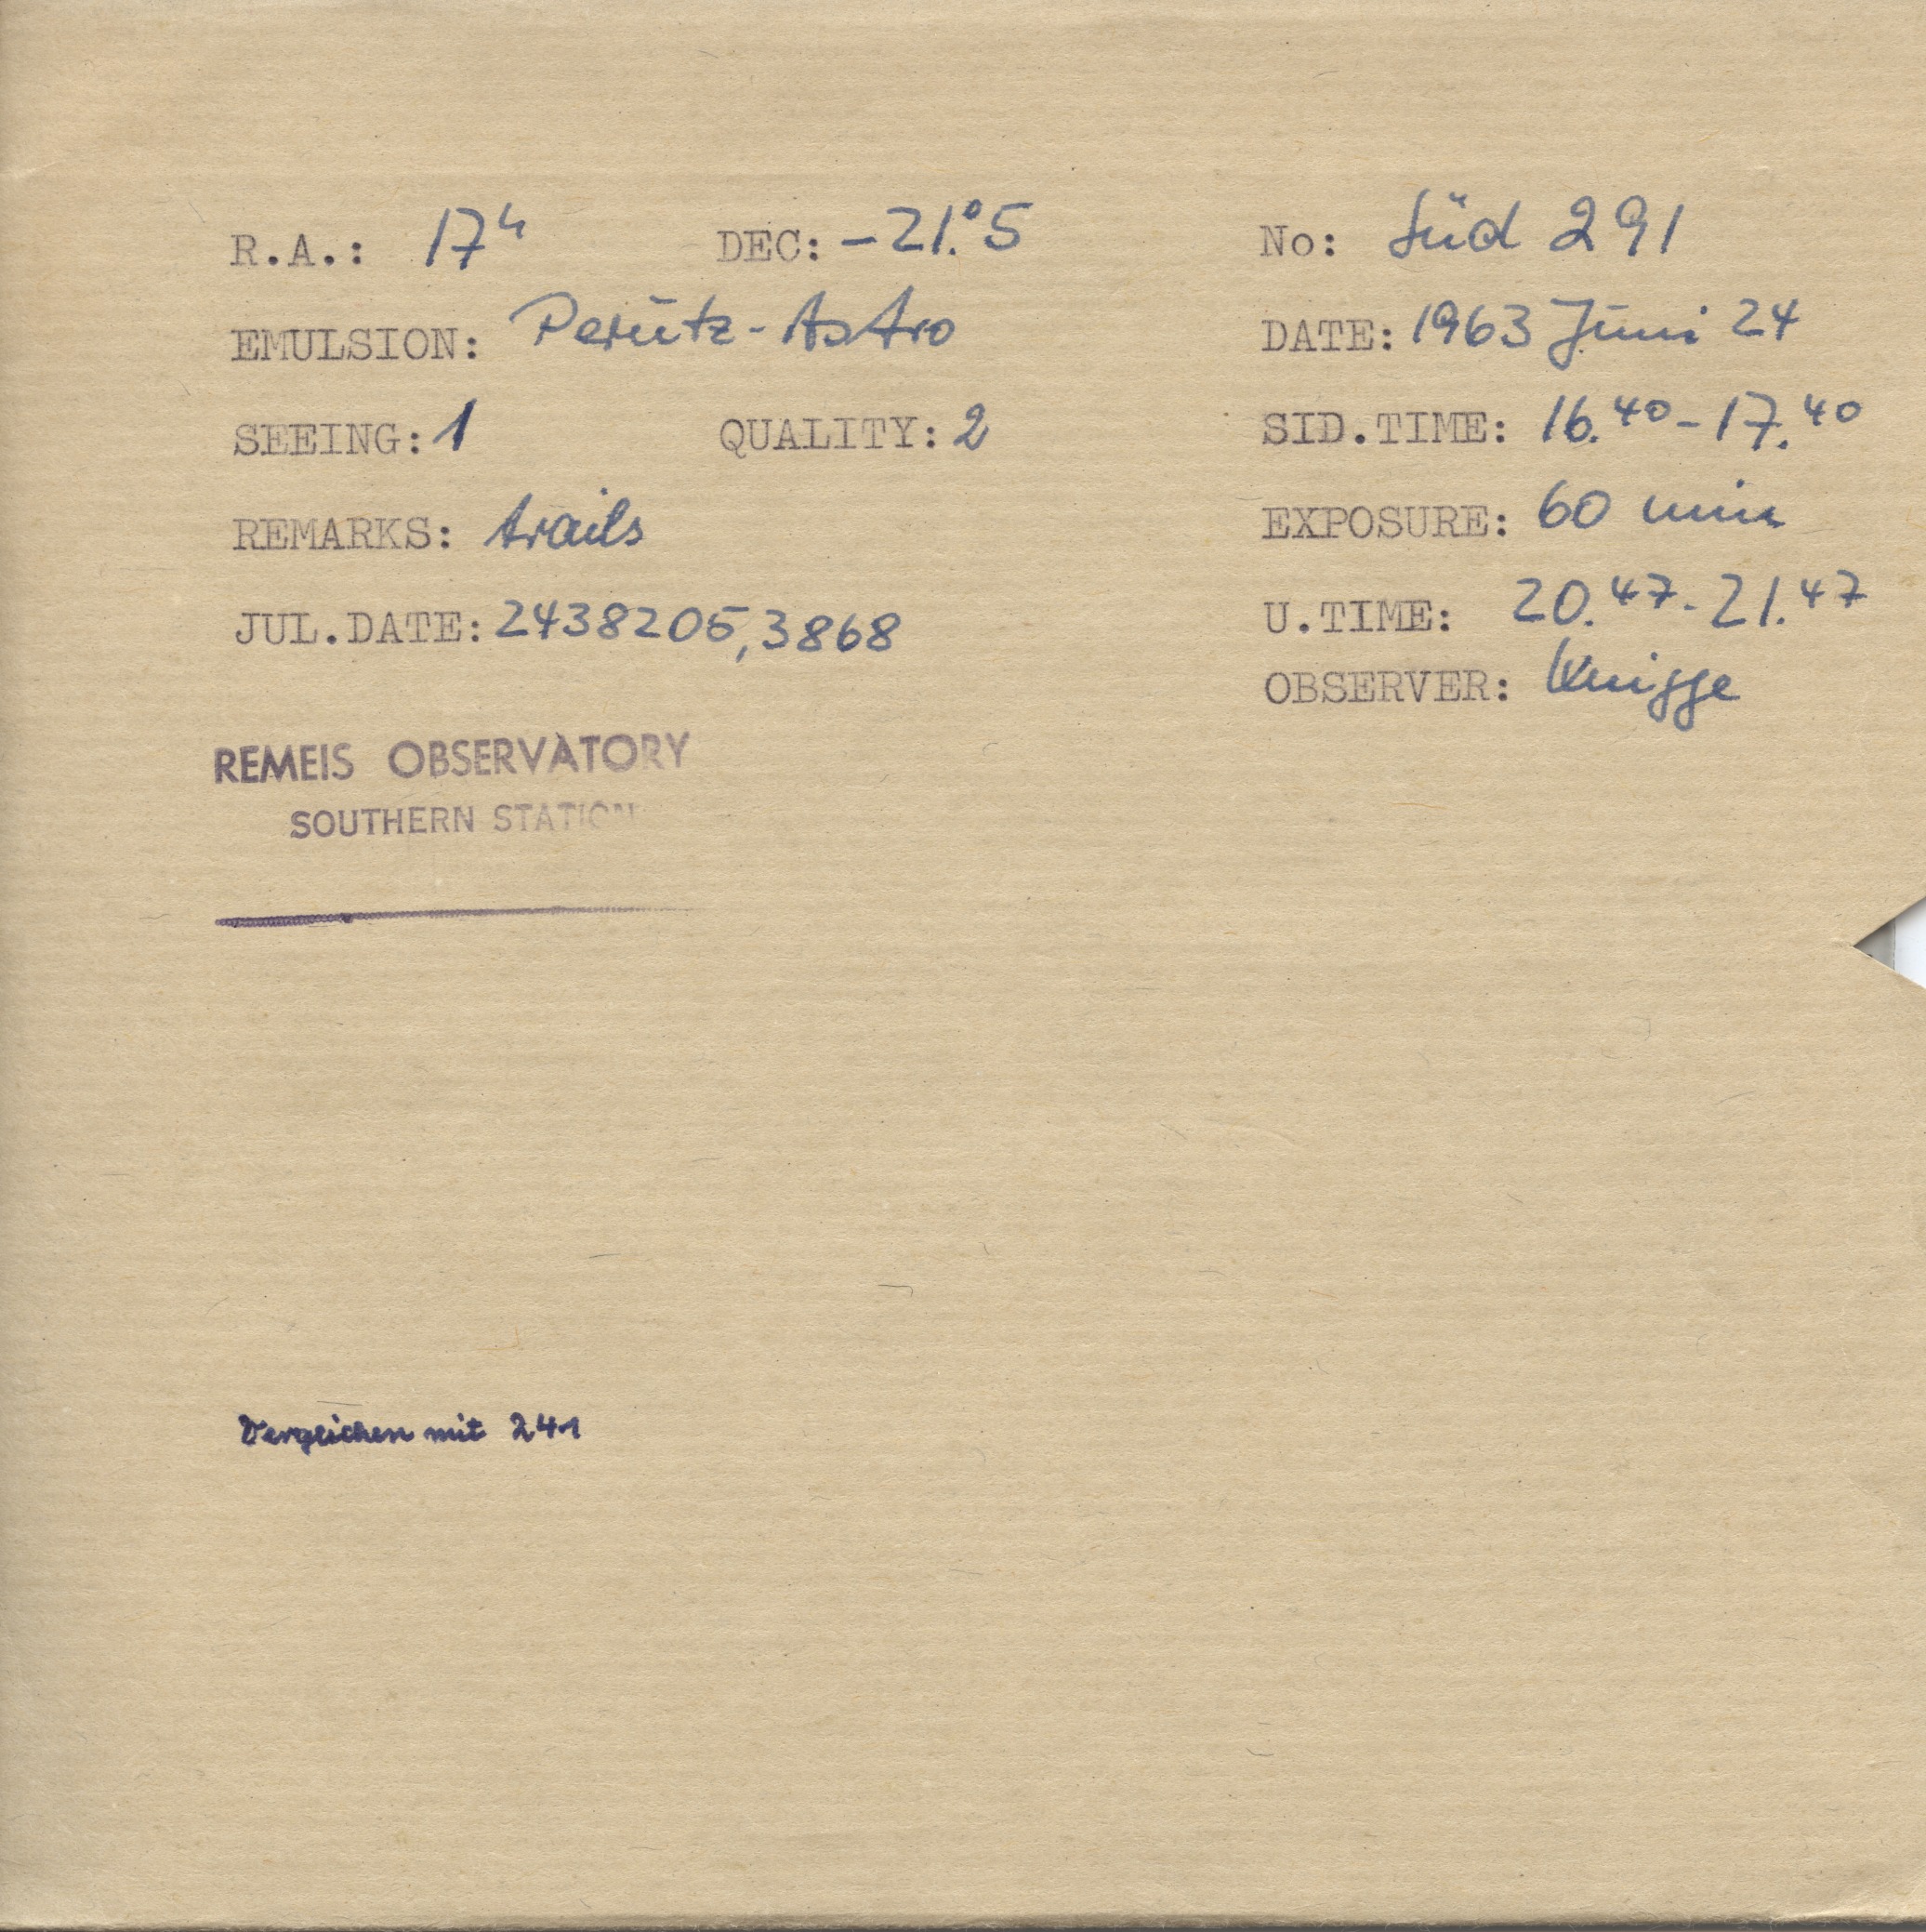 R.A.: 17ʰ DEC: -21.°5 No: Süd 291
EMULSION: Perutz-Astro DATE: 1963 Juni 24
SEEING: 1 QUALITY: 2 SID.TIME: 16.⁴⁰-17.⁴⁰
REMARKS: trails EXPOSURE: 60 min
JUL.DATE: 2438205,3868 U.TIME: 20.⁴⁷-21.⁴⁷
OBSERVER: Knigge
REMEIS OBSERVATORY
SOUTHERN STATION
Vergleichen mit 241